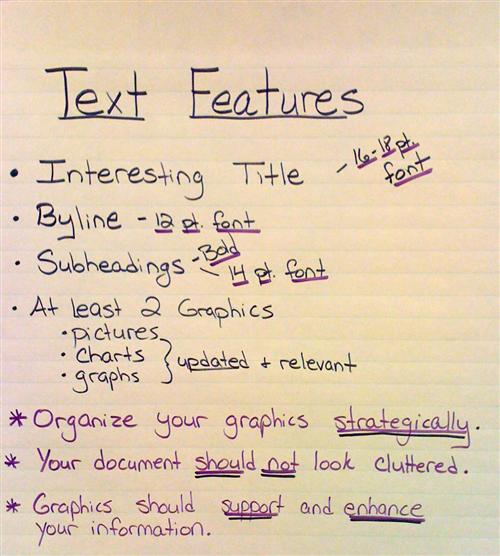 Text Features
• Interesting Title - 16-18 pt. font
• Byline - 12 pt. font
• Subheadings - Bold
- 14 pt. font
• At least 2 Graphics
• pictures
• charts } updated + relevant
• graphs
* Organize your graphics strategically.
* Your document should not look cluttered.
* Graphics should support and enhance
your information.